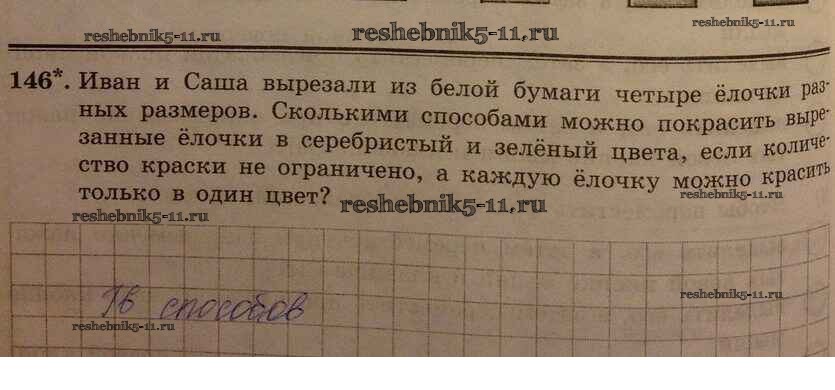 reshebnik5-11.ru
reshebnik5-11.ru
reshebnik5-11.ru
146*. Иван и Саша вырезали из белой бумаги четыре ёлочки раз-
ных размеров. Сколькими способами можно покрасить выре-
занные ёлочки в серебристый и зелёный цвета, если количе-
ство краски не ограничено, а каждую ёлочку можно красить
только в один цвет?
reshebnik5-11.ru
reshebnik5-11.ru
reshebnik5-11.ru
16 способов
reshebnik5-11.ru
reshebnik5-11.ru